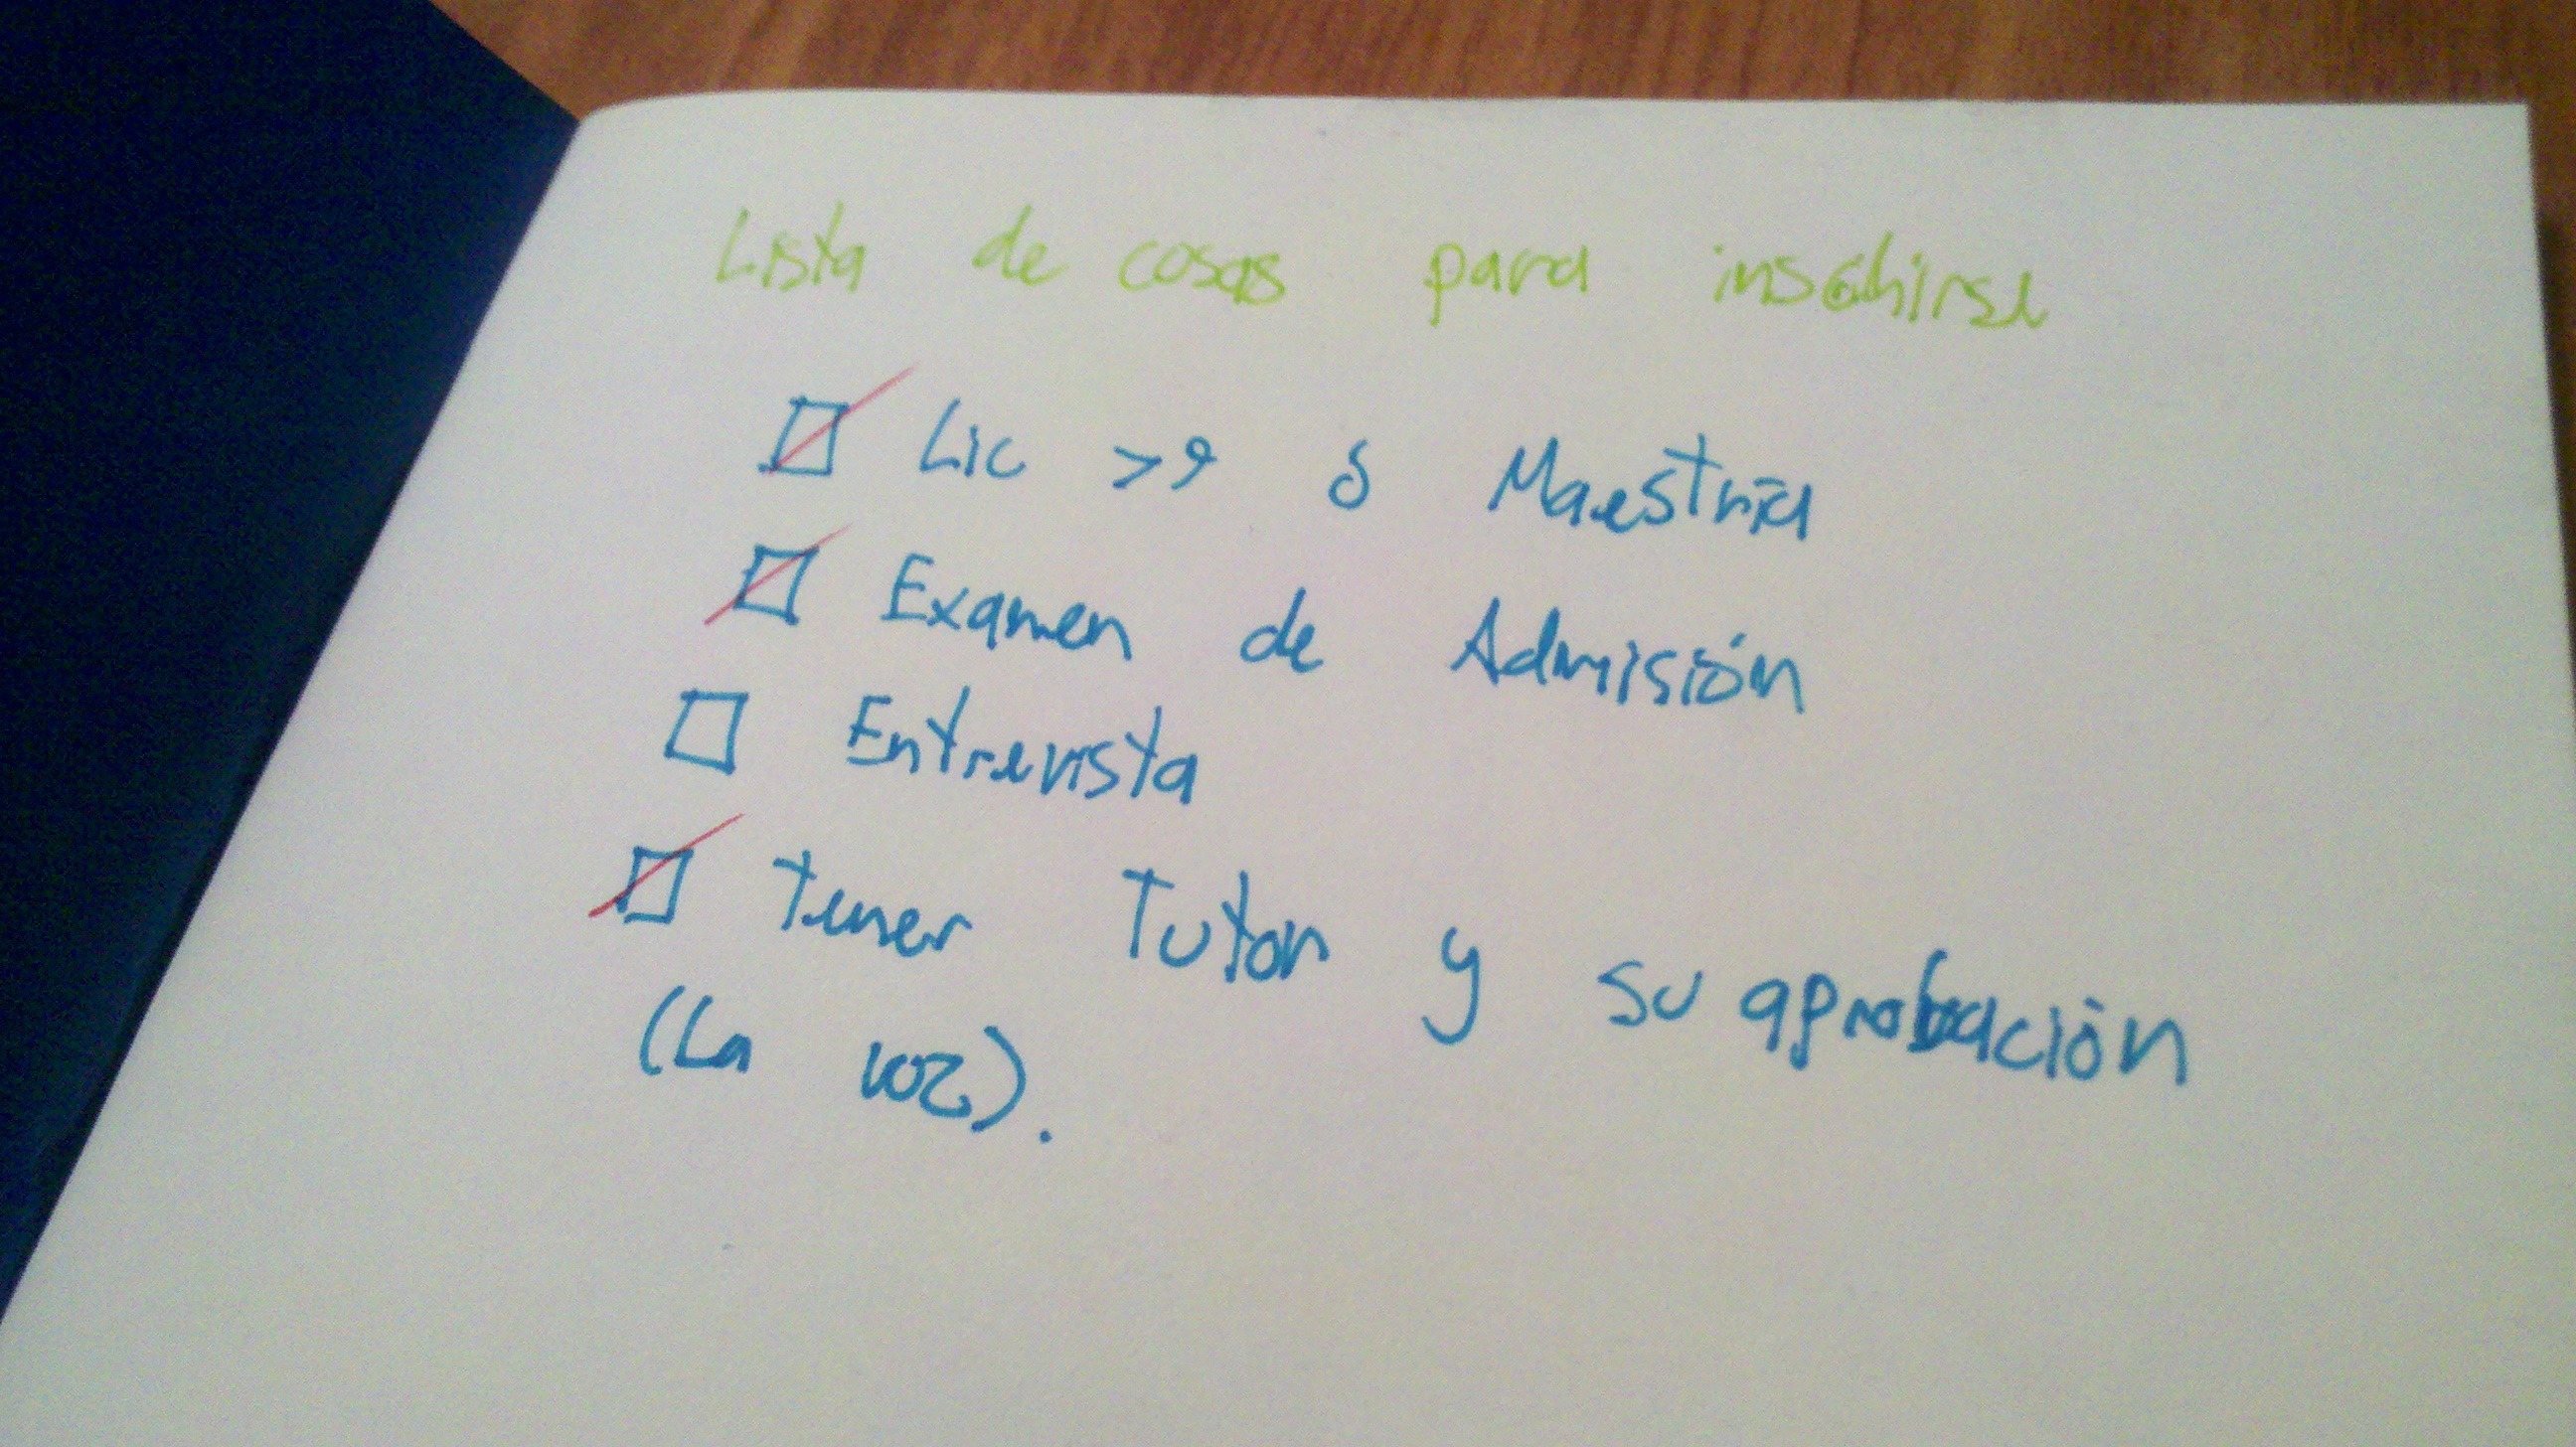 Lista de cosas para inscribirse
Lic >9 ó Maestría
Examen de Admisión
Entrevista
Tener Tutor y su aprobación
(La voz).